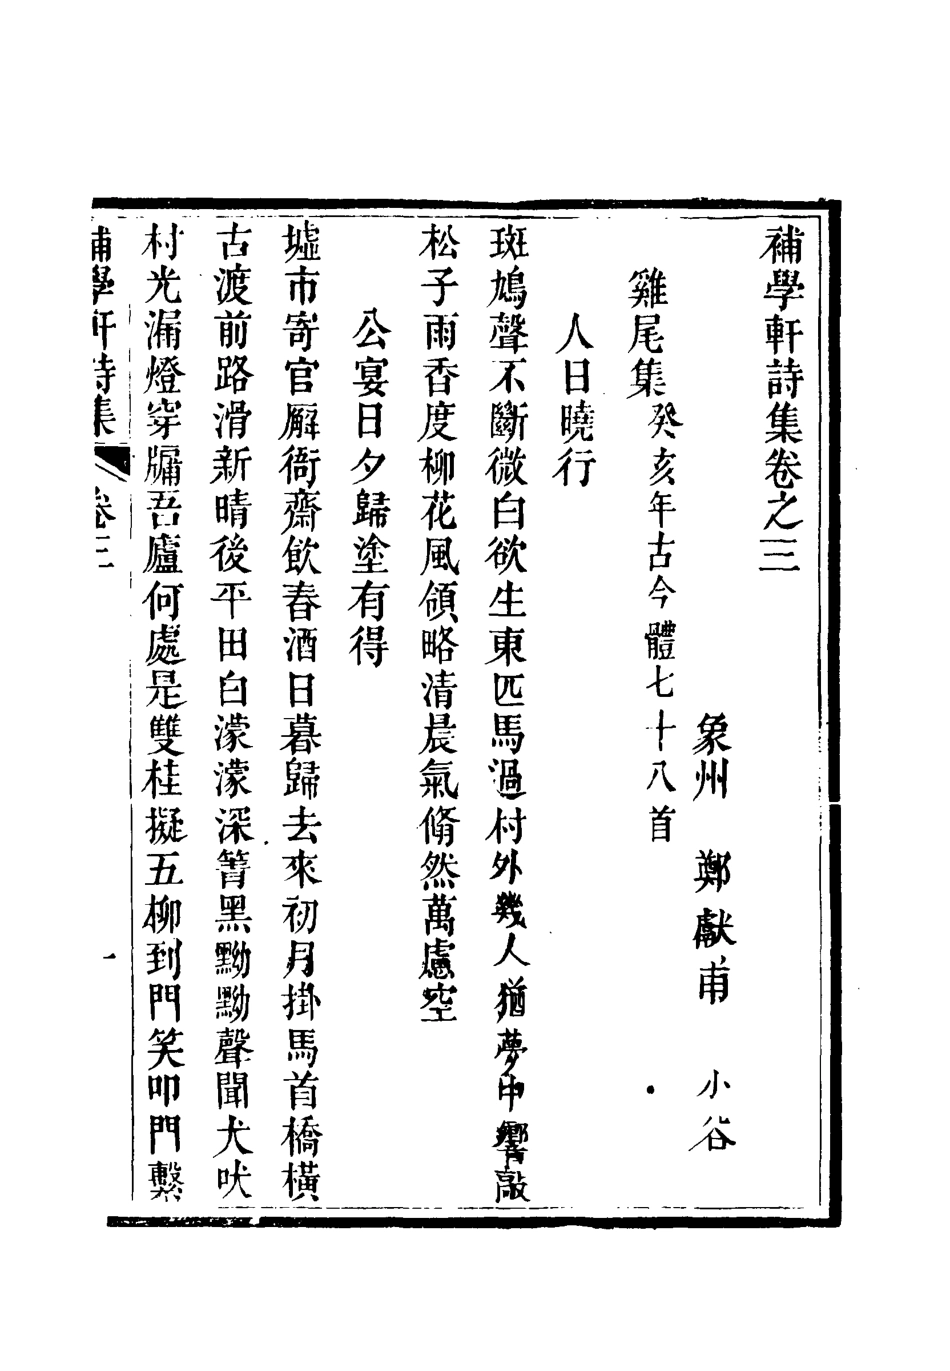 補學軒詩集卷之三
象州　鄭獻甫　小谷
雞尾集癸亥年古今體七十八首
人日曉行
斑鳩聲不斷微白欲生東匹馬過村外幾人猶夢中響敲
松子雨香度柳花風領略清晨氣翛然萬慮空
公宴日夕歸塗有得
墟市寄官廨衙齋飲春酒日暮歸去來初月掛馬首橋橫
古渡前路滑新晴後平田白濛濛深箐黑黝黝聲聞犬吠
村光漏燈穿牖吾廬何處是雙桂擬五柳到門笑叩門繫
補學軒詩集　卷三　一